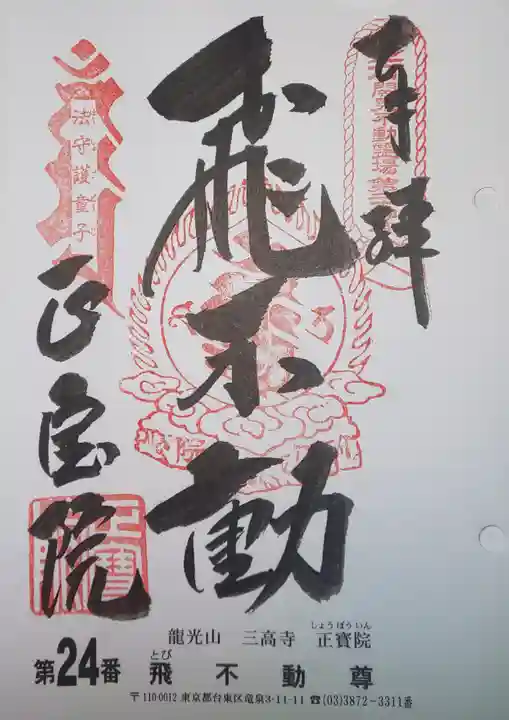 奉拝
飛不動
正宝院
法守護童子
龍光山 三高寺 正寶院
しょうぼういん
第24番 飛不動尊
とび
〒110-0012 東京都台東区竜泉3-11-11 ☎(03)3872-3311番